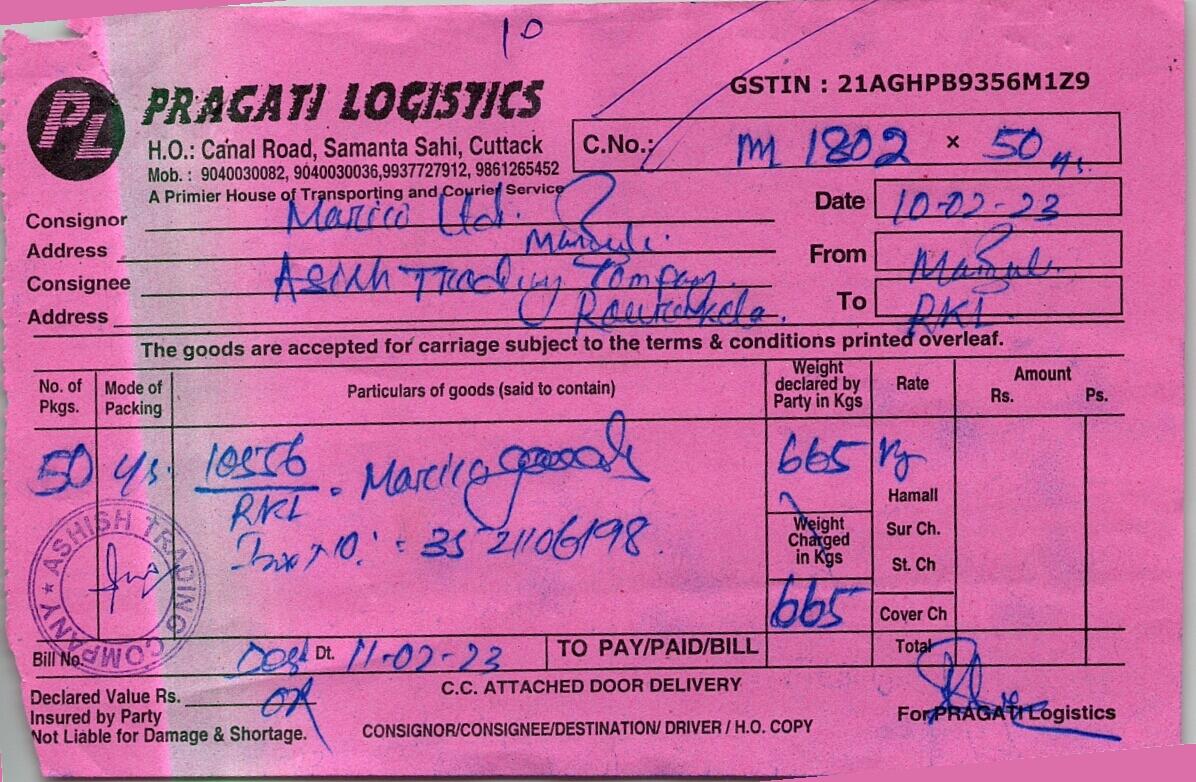 10
PL PRAGATI LOGISTICS
GSTIN : 21AGHPB9356M1Z9
H.O.: Canal Road, Samanta Sahi, Cuttack
Mob. : 9040030082, 9040030036,9937727912, 9861265452
A Primier House of Transporting and Courier Service
C.No.: M 1802 × 50
Date 10-02-23
Consignor Marico Ltd.
Address
From
Consignee Trading Company.
Address Rourakela.
To RKL.
The goods are accepted for carriage subject to the terms & conditions printed overleaf.
No. of Pkgs. Mode of Packing Particulars of goods (said to contain) Weight declared by Party in Kgs Rate Amount Rs. Ps.
50 10556 Marico goods 665
RKL
Hamall
Weight Charged in Kgs
Sur Ch.
: 35 21106198.
St. Ch
665
Cover Ch
ASHISH TRADING COMPANY ★
Bill No. Dt. 11-02-23 TO PAY/PAID/BILL Total
Declared Value Rs.
C.C. ATTACHED DOOR DELIVERY
Insured by Party
Not Liable for Damage & Shortage.
CONSIGNOR/CONSIGNEE/DESTINATION/ DRIVER / H.O. COPY
For PRAGATI Logistics